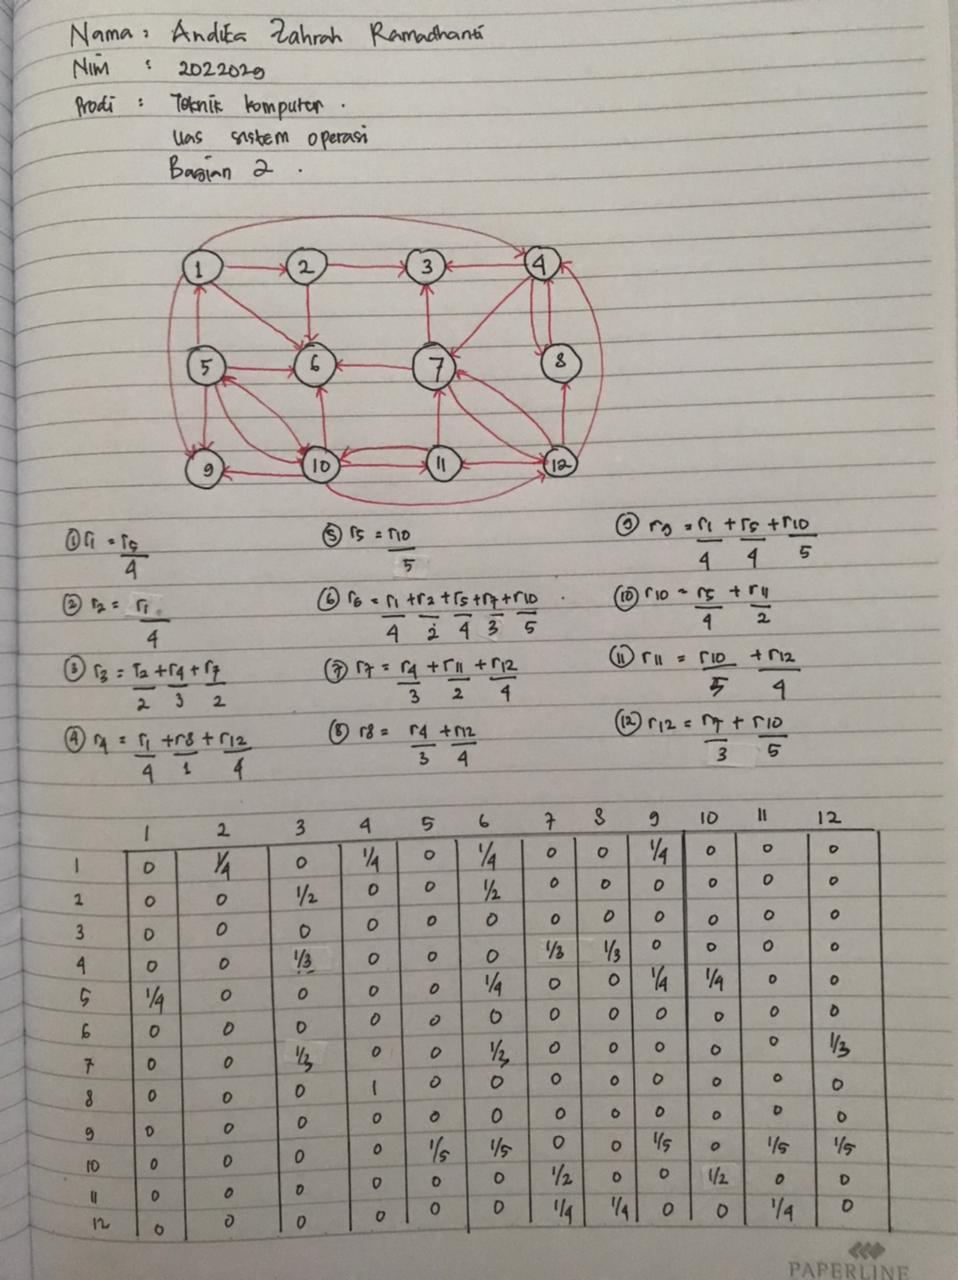 Nama : Andika Zahrah Ramadhanti
Nim : 2022029
Prodi : Teknik komputer .
Uas sistem operasi
Bagian 2 .
1 2 3 4
5 6 7 8
9 10 11 12
① r1 = r5/4
⑤ r5 = r10/5
⑨ r9 = r1/4 + r5/4 + r10/5
② r2 = r1/4
⑥ r6 = r1/4 + r2/2 + r5/4 + r7/3 + r10/5
⑩ r10 = r5/4 + r11/2
③ r3 = r2/2 + r4/3 + r7/2
⑦ r7 = r4/3 + r11/2 + r12/4
⑪ r11 = r10/5 + r12/4
④ r4 = r1/4 + r8/1 + r12/4
⑧ r8 = r4/3 + r12/4
⑫ r12 = r7/3 + r10/5
1 2 3 4 5 6 7 8 9 10 11 12
1 0 1/4 0 1/4 0 1/4 0 0 1/4 0 0 0
2 0 0 1/2 0 0 1/2 0 0 0 0 0 0
3 0 0 0 0 0 0 0 0 0 0 0 0
4 0 0 1/3 0 0 0 1/3 1/3 0 0 0 0
5 1/4 0 0 0 0 1/4 0 0 1/4 1/4 0 0
6 0 0 0 0 0 0 0 0 0 0 0 0
7 0 0 1/3 0 0 1/3 0 0 0 0 0 1/3
8 0 0 0 1 0 0 0 0 0 0 0 0
9 0 0 0 0 0 0 0 0 0 0 0 0
10 0 0 0 0 1/5 1/5 0 0 1/5 0 1/5 1/5
11 0 0 0 0 0 0 1/2 0 0 1/2 0 0
12 0 0 0 0 0 0 1/4 1/4 0 0 1/4 0
PAPERLINE